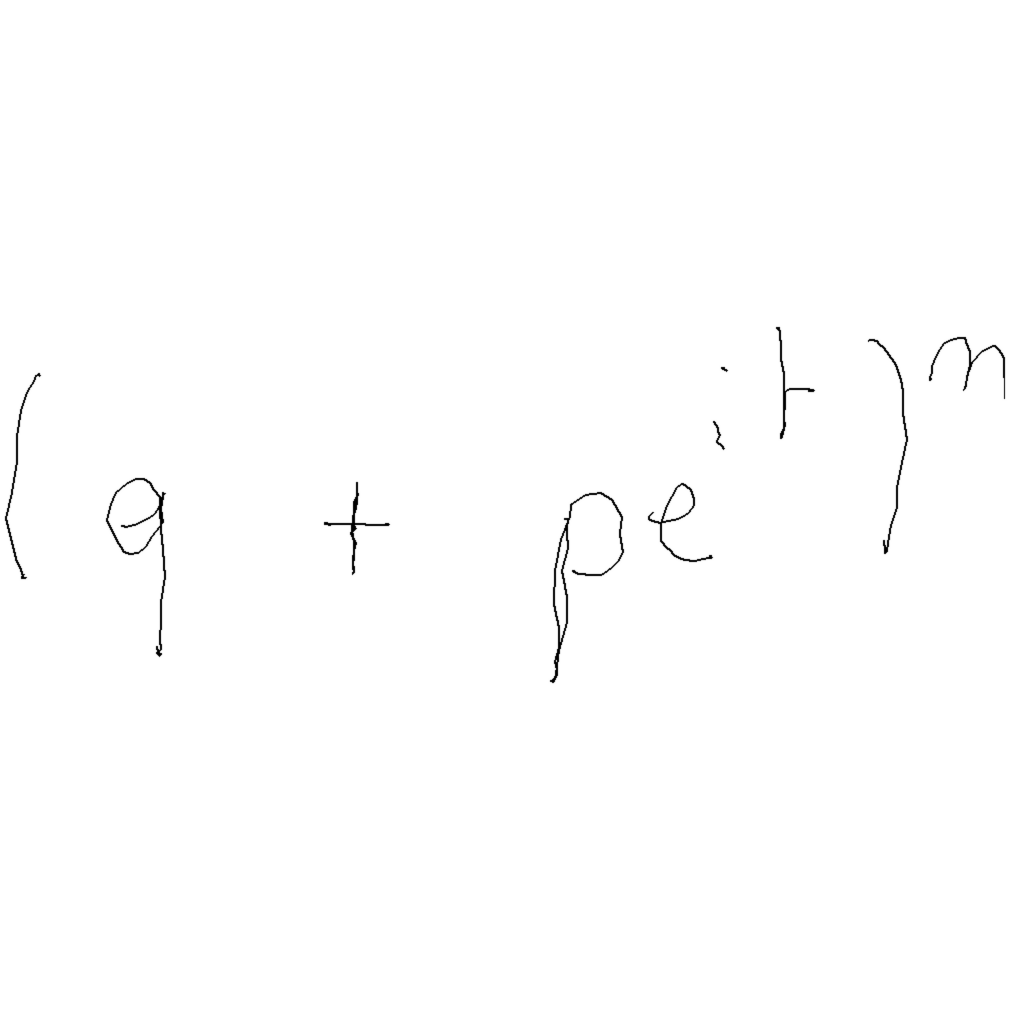 (q + pe^{it})^m